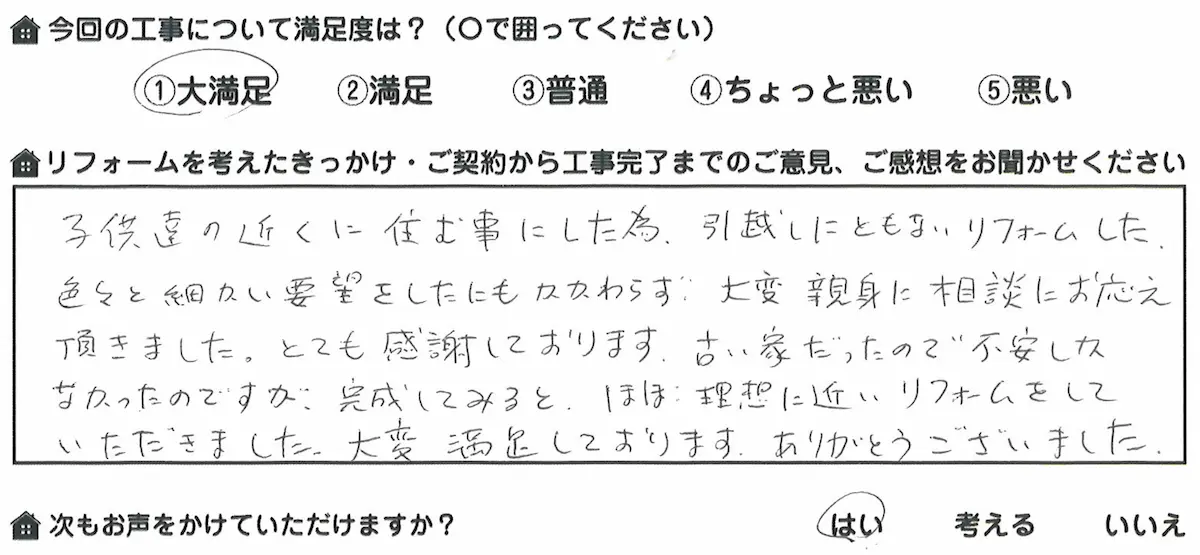 今回の工事について満足度は？（〇で囲ってください）
①大満足 ②満足 ③普通 ④ちょっと悪い ⑤悪い
リフォームを考えたきっかけ・ご契約から工事完了までのご意見、ご感想をお聞かせください
子供達の近くに住む事にした為、引越しにともないリフォームした。
色々と細かい要望をしたにもかかわらず、大変親身に相談にお応え
頂きました。とても感謝しております。古い家だったので不安しか
なかったのですが、完成してみると、ほぼ理想に近いリフォームをして
いただきました。大変満足しております。ありがとうございました。
次もお声をかけていただけますか？ はい 考える いいえ